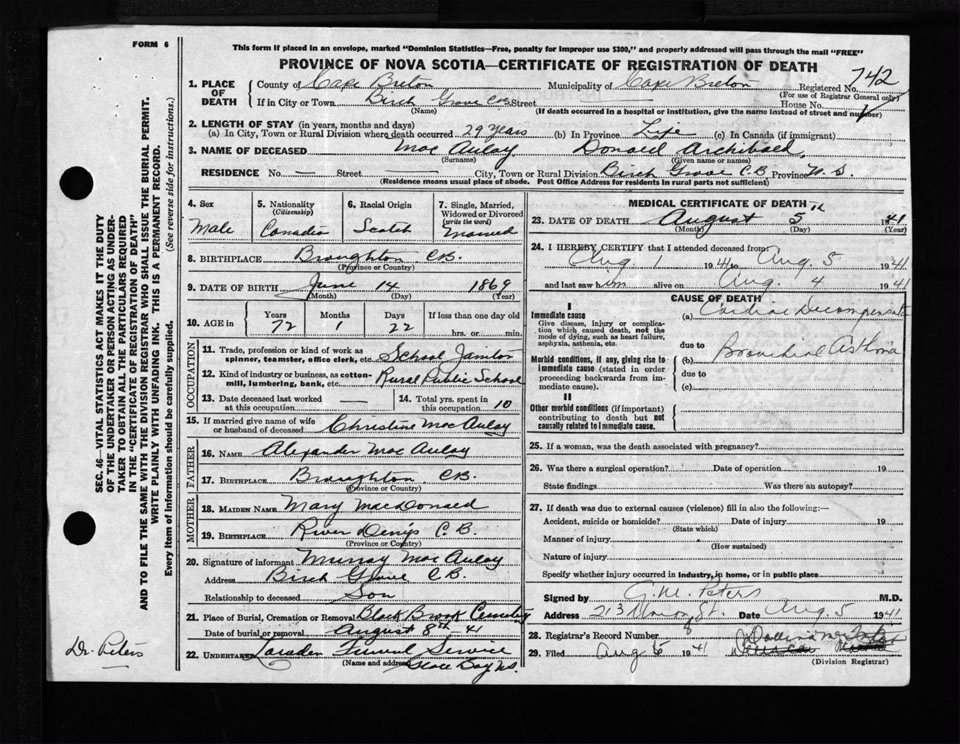 FORM 6
This form if placed in an envelope, marked "Dominion Statistics—Free, penalty for improper use $300," and properly addressed will pass through the mail "FREE"
PROVINCE OF NOVA SCOTIA—CERTIFICATE OF REGISTRATION OF DEATH
742
1. PLACE OF DEATH
County of Cape Breton Municipality of Cape Breton Registered No.
(For use of Registrar General only)
If in City or Town Birch Grove C.B. Street House No.
(Name) (If death occurred in a hospital or institution, give the name instead of street and number)
2. LENGTH OF STAY (in years, months and days)
(a) In City, Town or Rural Division where death occurred 29 years (b) In Province Life (c) In Canada (if immigrant)
3. NAME OF DECEASED Mac Aulay Donald Archibald
(Surname) (Given name or names)
RESIDENCE No. — Street City, Town or Rural Division Birch Grove C.B. Province N.S.
(Residence means usual place of abode. Post Office Address for residents in rural parts not sufficient)
4. Sex Male
5. Nationality (Citizenship) Canadian
6. Racial Origin Scotch
7. Single, Married, Widowed or Divorced (write the word) Married
8. BIRTHPLACE Broughton C.B.
(Province or Country)
9. DATE OF BIRTH June 14 1869
(Month) (Day) (Year)
10. AGE in Years Months Days If less than one day old
72 1 22 hrs. or min.
OCCUPATION
11. Trade, profession or kind of work as spinner, teamster, office clerk, etc School Janitor
12. Kind of industry or business, as cotton-mill, lumbering, bank, etc. Rural Public School
13. Date deceased last worked at this occupation —
14. Total yrs. spent in this occupation 10
15. If married give name of wife or husband of deceased Christine Mac Aulay
FATHER
16. NAME Alexander Mac Aulay
17. BIRTHPLACE Broughton C.B.
(Province or Country)
MOTHER
18. MAIDEN NAME Mary MacDonald
19. BIRTHPLACE River Denys C.B.
(Province or Country)
20. Signature of informant Murray Mac Aulay
Address Birch Grove C.B.
Relationship to deceased Son
21. Place of Burial, Cremation or Removal Black Brook Cemetery
Date of burial or removal August 8th 41
22. UNDERTAKER Funeral Service
(Name and address) Glace Bay N.S.
MEDICAL CERTIFICATE OF DEATH
23. DATE OF DEATH August 5th 1941
(Month) (Day) (Year)
24. I HEREBY CERTIFY that I attended deceased from:
Aug 1 1941 to Aug. 5 1941
and last saw him alive on Aug. 4 1941
CAUSE OF DEATH
I
Immediate cause
Give disease, injury or complication which caused death, not the mode of dying, such as heart failure, asphyxia, asthenia, etc.
(a) Cardiac Decompensate
due to
Morbid conditions, if any, giving rise to immediate cause (stated in order proceeding backwards from immediate cause).
(b) Bronchial Asthma
due to
(c)
II
Other morbid conditions (if important) contributing to death but not causally related to immediate cause.
25. If a woman, was the death associated with pregnancy?
26. Was there a surgical operation? Date of operation 19
State findings Was there an autopsy?
27. If death was due to external causes (violence) fill in also the following:—
Accident, suicide or homicide? Date of injury 19
(State which)
Manner of injury
(How sustained)
Nature of injury
Specify whether injury occurred in industry, in home, or in public place
Signed by G. M. Peters M.D.
Address 213 Union St. Date Aug. 5 1941
28. Registrar's Record Number 8
29. Filed Aug 6 1941
(Division Registrar)
SEC. 46—VITAL STATISTICS ACT MAKES IT THE DUTY
OF THE UNDERTAKER OR PERSON ACTING AS UNDER-
TAKER TO OBTAIN ALL THE PARTICULARS REQUIRED
IN THE "CERTIFICATE OF REGISTRATION OF DEATH"
AND TO FILE THE SAME WITH THE DIVISION REGISTRAR WHO SHALL ISSUE THE BURIAL PERMIT.
WRITE PLAINLY WITH UNFADING INK. THIS IS A PERMANENT RECORD.
Every item of Information should be carefully supplied. (See reverse side for instructions.)
Dr. Peters